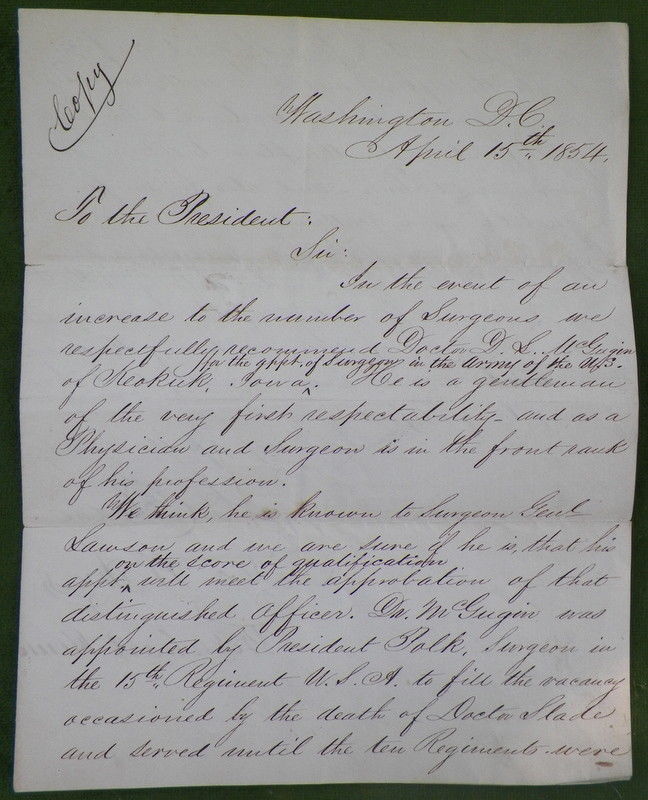 Copy
Washington D.C.
April 15th 1854.
To the President:
Sir:
In the event of an
increase to the number of Surgeons we
respectfully recommend Doctor D. L. McGugin
for the appt. of Surgeon in the Army of the U.S.
of Keokuk, Iowa ^. He is a gentleman
of the very first respectability - and as a
Physician and Surgeon is in the front rank
of his profession.
We think, he is known to Surgeon Genl
Lawson and we are sure if he is, that his
on the score of qualification
appt ^ will meet the approbation of that
distinguished officer. Dr. McGugin was
appointed by President Polk, Surgeon in
the 15th Regiment U.S.A. to fill the vacancy
occasioned by the death of Doctor Slade
and served until the ten Regiments were